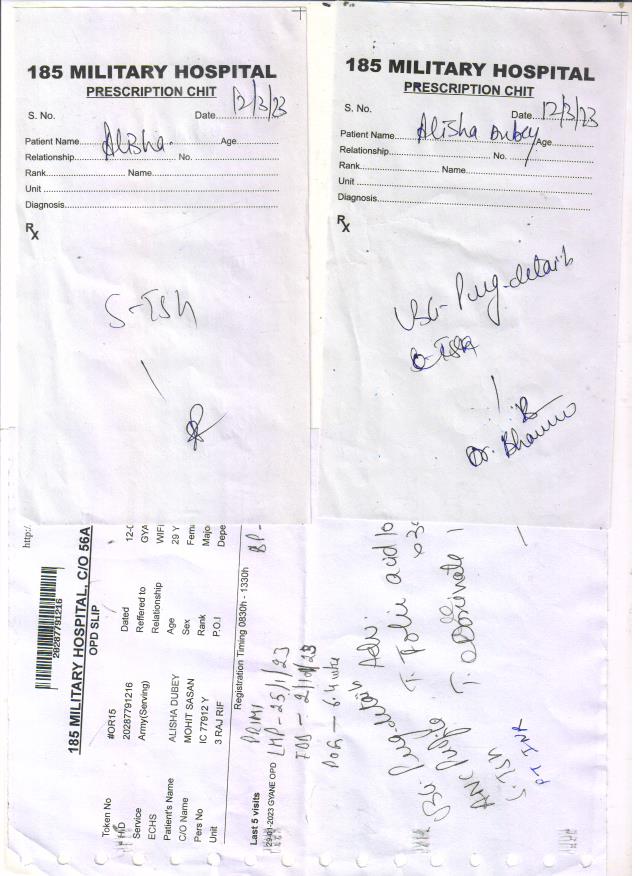 185 MILITARY HOSPITAL
PRESCRIPTION CHIT
S. No. Date 12/3/23
Patient Name Alisha. Age
Relationship No.
Rank Name
Unit
Diagnosis
Rx
S-TSH
185 MILITARY HOSPITAL
PRESCRIPTION CHIT
S. No. Date 12/3/23
Patient Name Alisha Dubey Age
Relationship No.
Rank Name
Unit
Diagnosis
Rx
USG-Preg-details
S-TSH
Dr. Bhanu
http:/
20287791216
185 MILITARY HOSPITAL, C/O 56A
OPD SLIP
Token No #OR15 Dated 12-0
HID 20287791216 Reffered to GYA
Service Army(Serving) Relationship WIF
ECHS Age 29 Y
Patient's Name ALISHA DUBEY Sex Fem
C/O Name MOHIT SASAN Rank Majo
Pers No IC 77912 Y P.O.I Depe
Unit 3 RAJ RIF
Registration Timing 0830h - 1330h
Last 5 visits
29-01-2023 GYANE OPD
BP-
PRIMI
LMP - 25/1/23
EDD - 2/10/23
POG - 6.4 wks
Adv:
T. Folic acid
ANC Profile
S. TSH